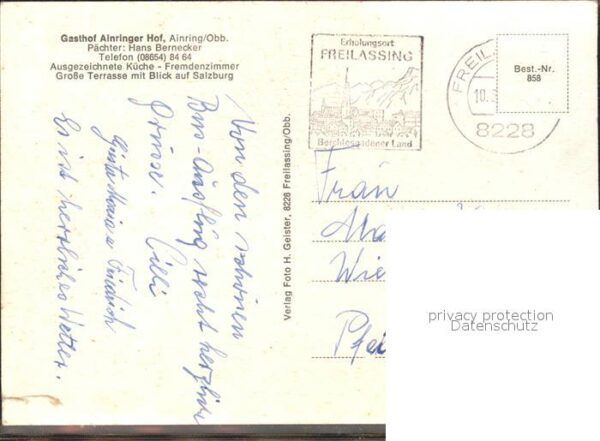 Gasthof Ainringer Hof, Ainring/Obb.
Pächter: Hans Bernecker
Telefon (08654) 84 64
Ausgezeichnete Küche - Fremdenzimmer
Große Terrasse mit Blick auf Salzburg
Von den schönen
Bus-Ausflug recht herzliche
Grüsse. Cilli
Friedrich
Es ist herzliches Wetter.
Verlag Foto H. Geister, 8228 Freilassing/Obb.
Erholungsort
FREILASSING
Berchtesgadener Land
FREIL
10.
8228
Best.-Nr.
858
Frau
Ma
Wie
Pfei
privacy protection
Datenschutz